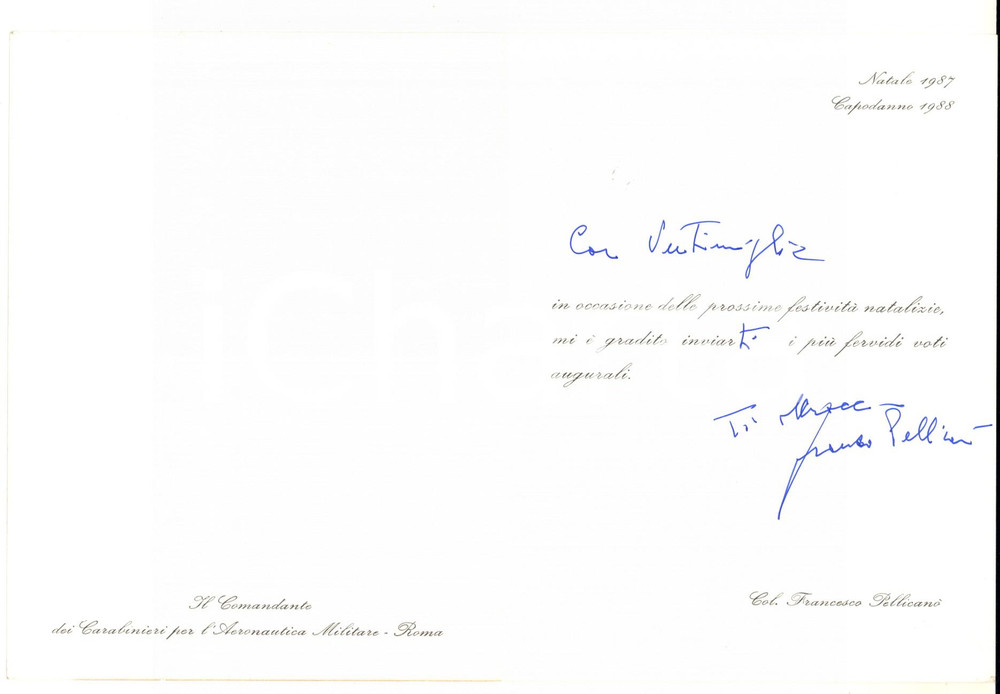 Natale 1987
Capodanno 1988
Car Ventimiglia
in occasione delle prossime festività natalizie,
mi è gradito inviarti i più fervidi voti
augurali.
Ti
Franco Pellicanò
Il Comandante
dei Carabinieri per l'Aeronautica Militare - Roma
Col. Francesco Pellicanò